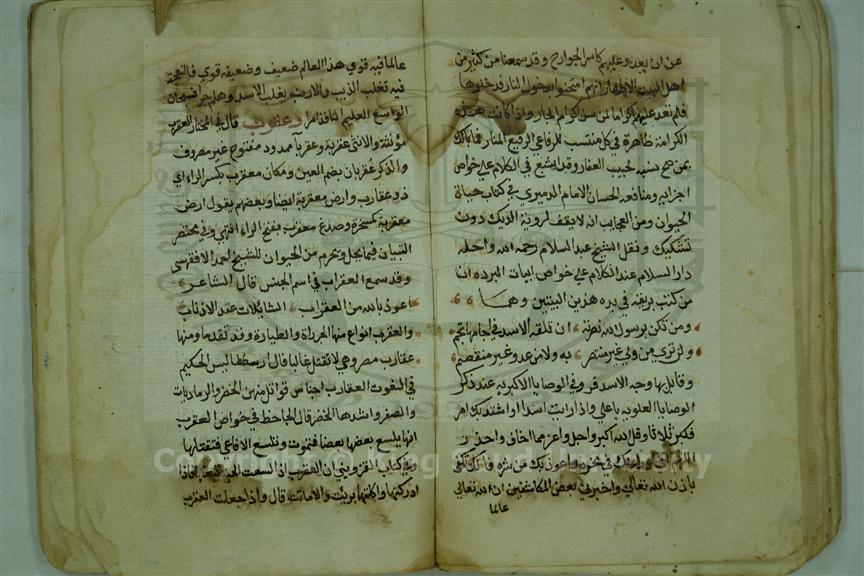 عن ان يعدو عليهم كاسر الجوارح وقد سمعنا من كثير من
اهل البيت الاطهار انهم امتحنوا دخول النار فدخلوها
فلم تعد عليهم كراما من سر اكرام الجار واذا كانت هذه
الكرامة ظاهرة في كل منتسب للرفاعي الرفيع المنار فما بالك
بمن صح نسبه لحبيب الغفار وقد اشبع في الكلام على خواص
اجزايه ومنافعه الحسان الامام الدميري في كتاب حياة
الحيوان ومن العجايب انه لا يقف لرؤية الديك دون
تشكيك ونقل الشيخ عبد السلام رحمه الله واحله
دار السلام عند الكلام على خواص ابيات البرده ان
من كتب بريقه في يده هذين البيتين وهما
ومن تكن برسول الله نصرته ان تلقه الاسد في اجامها تجم
ولن ترى من ولي غير منتصر به ولا من عدو غير منقصم
وقابل بها وجه الاسد فر وفي الوصايا الاكبريه عند ذكر
الوصايا العلويه يا علي واذا رايت اسدا واشتد بك امر
فكبر ثلاثا وقل الله اكبر واجل واعز مما اخاف واحذر
اللهم اني ادرا بك في نحره واعوذ بك من شره فانك تكفى
باذن الله تعالى واخبرني بعض المكاشفين ان الله تعالى
عالما
عالما فيه قوي هذا العالم ضعيف وضعيفه قوي فالنعجة
فيه تغلب الذيب والارنب يغلب الاسد وهلم جرا فسبحان
الواسع العليم النافذ امرا وعقرب قال في المختار العقرب
مؤنثة والانثى عقربة وعقربآ ممدود مفتوح غير مصروف
والذكر عقربان بضم العين ومكان معقرب بكسر الراء اي
ذو عقارب وارض معقربة ايضا وبعضهم يقول ارض
معقرة كمسخرة وصدغ معقرب بفتح الراء انتهى وفي مختصر
التبيان فيما يحل ويحرم من الحيوان للشيخ احمد الاقفهسي
وقد سمع العقراب في اسم الجنس قال الشاعر
اعوذ بالله من العقراب الشايلات عقد الاذناب
والعقرب انواع منها الجرارة والطيارة وقد تقدما ومنها
عقارب مصر وهي لا تقتل غالبا قال ارسطاطاليس الحكيم
في النعوت العقارب اجناس قواتل منهن الخضر والرماديات
والصفر واشدها الخضر قال الجاحظ في خواص العقرب
انها يلسع بعضها بعضا فتموت وتلسع الافاعي فتقتلها
وفي كتاب القزويني ان العقرب اذا لسعت الحية فاذا
ادركتها واكلتها بريت والا ماتت قال واذا جعلت العقرب
Copyright © King Saud University